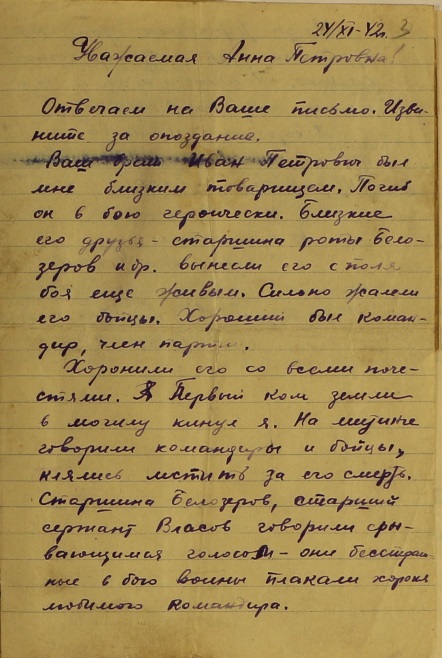 24/XI-42г. 3
Уважаемая Анна Петровна!
Отвечаем на Ваше письмо. Изви-
ните за опоздание.
Ваш брат Иван Петрович был
мне близким товарищем. Погиб
он в бою героически. Близкие
его друзья - старшина роты Бело-
зеров и др. вынесли его с поля
боя еще живым. Сильно жалели
его бойцы. Хороший был коман-
дир, член партии.
Хоронили его со всеми поче-
стями. Первый ком земли
в могилу кинул я. На митинге
говорили командиры и бойцы,
клялись мстить за его смерть.
Старшина Белозеров, старший
сержант Власов говорили сры-
вающимся голосом - они бесстраш-
ные в бою воины плакали хороня
любимого командира.